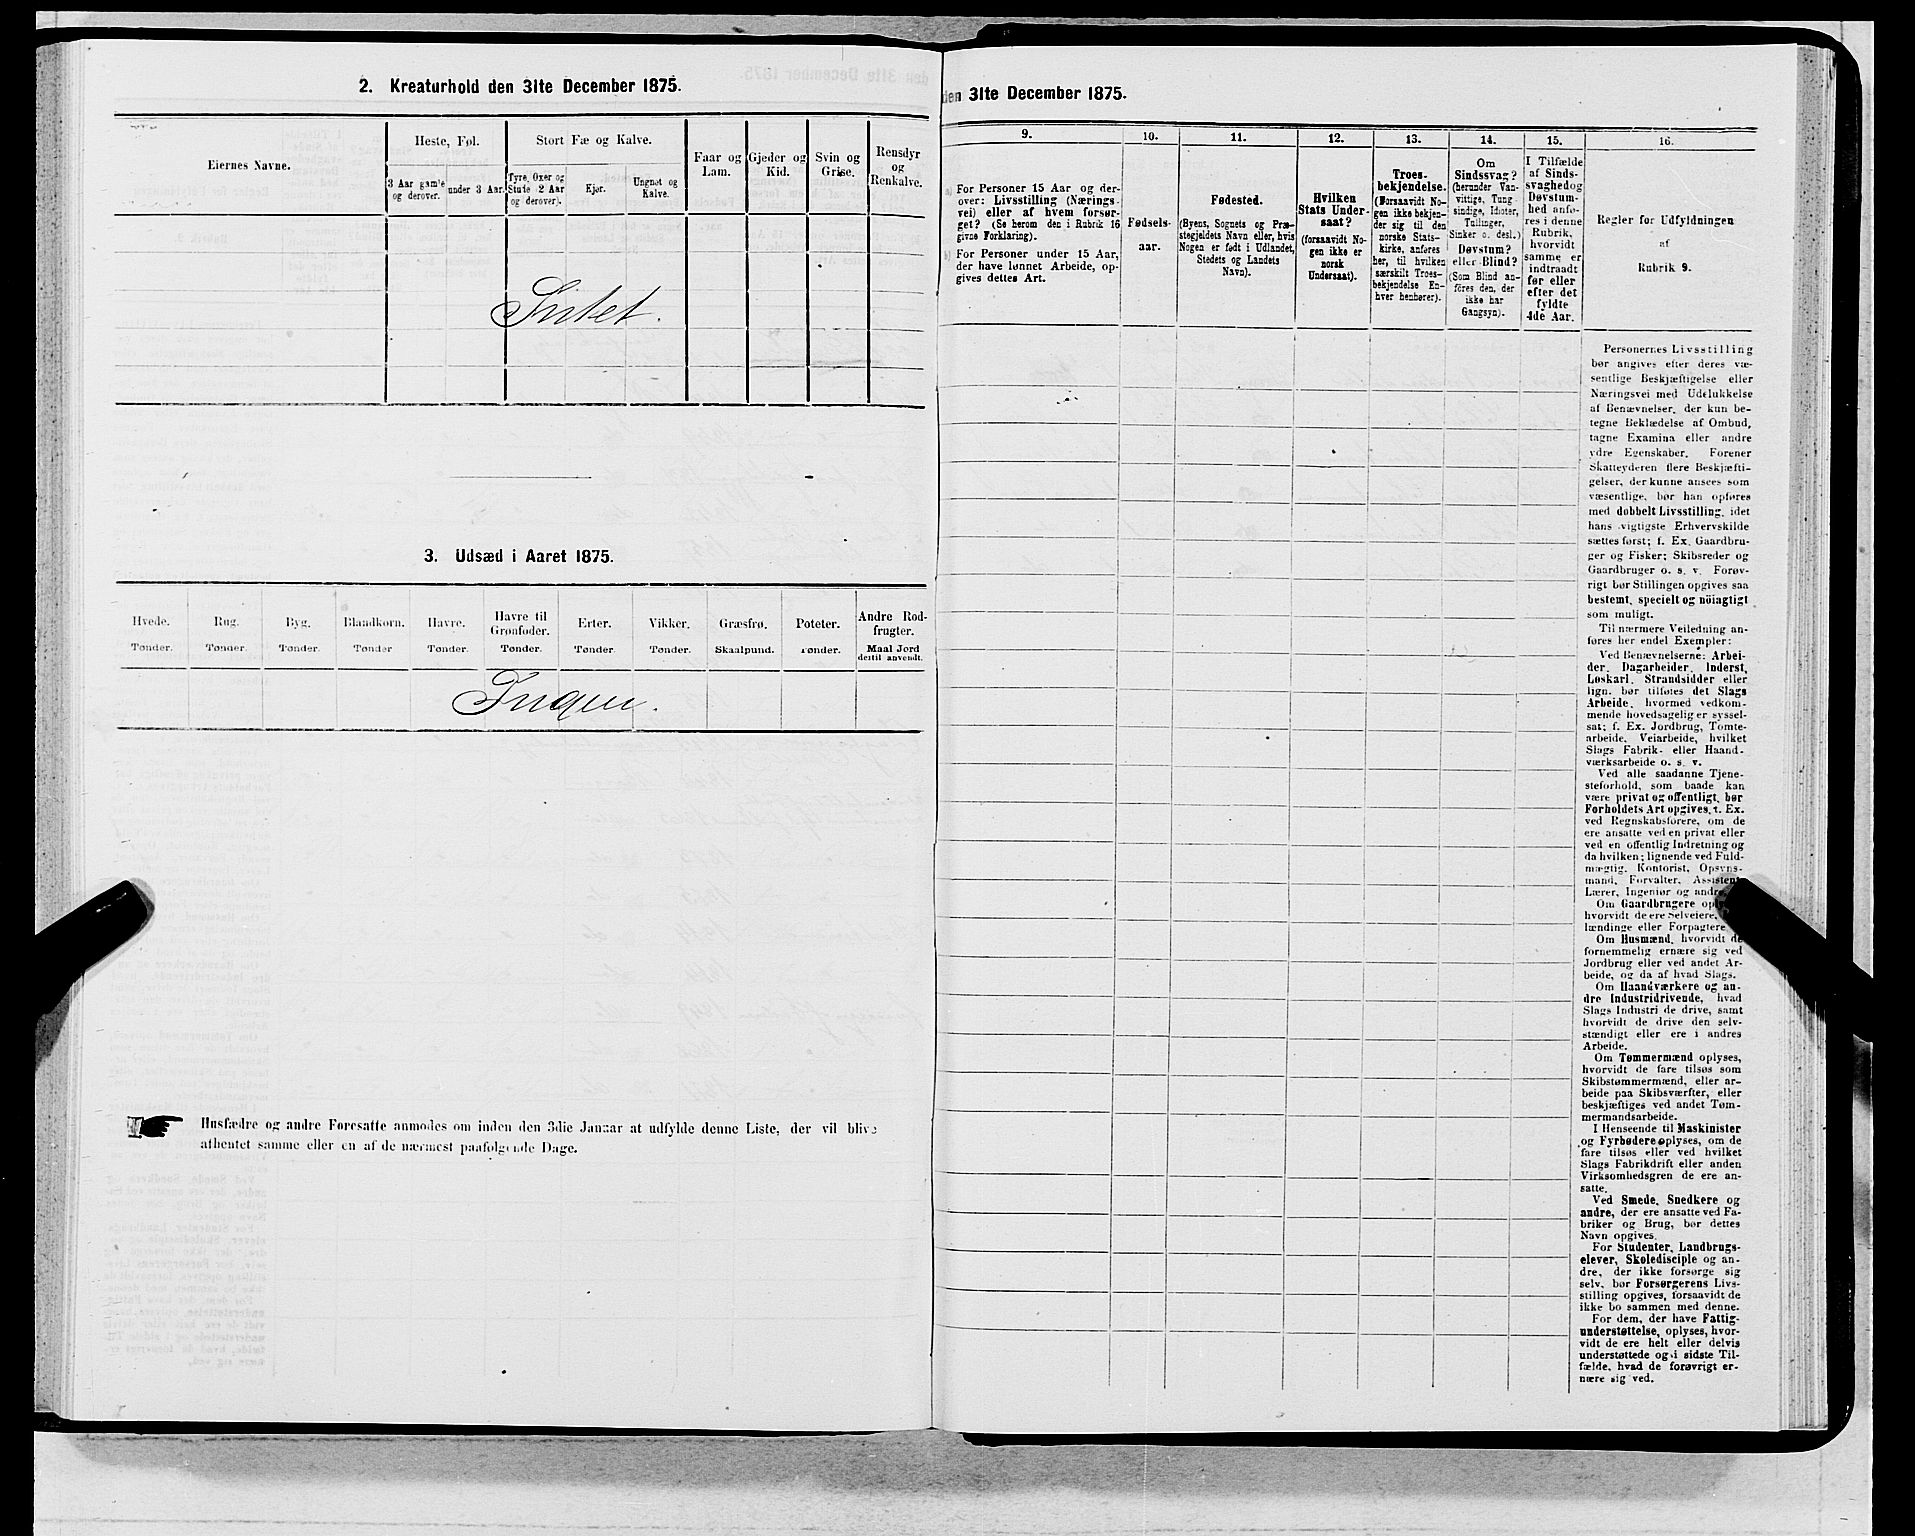 2. Kreaturhold den 31te December 1875.
Eiernes Navne.
Heste, Føl.
3 Aar gamle
og derover.
under 3 Aar.
Stort Fæ og Kalve.
Tyre, Oxer og
Stude 2 Aar
og derover).
Kjør.
Ungnøt og
Kalve.
Faar og
Lam.
Gjeder og
Kid.
Svin og
Grise.
Rensdyr
og
Renkalve.
Intet.
3. Udsæd i Aaret 1875.
Hvede.
Tønder.
Rug.
Tønder.
Byg.
Tønder.
Blandkorn.
Tønder
Havre.
Tønder.
Havre til
Grønfoder.
Tønder.
Erter.
Tønder.
Vikker.
Tønder.
Græsfrø.
Skaalpund.
Poteter.
Tønder.
Andre Rod-
frugter.
Maal Jord
dertil anvendt.
Ingen.
Husfædre og andre Foresatte anmodes om inden den 3die Januar at udfylde denne Liste, der vil blive
afhentet samme eller en af de nærmest paafølgende Dage.
den 31te December 1875.
9.
a) For Personer 15 Aar og der-
over: Livsstilling (Nærings-
vei) eller af hvem forsør-
get? (Se herom den i Rubrik 16
givne Forklaring).
b) For Personer under 15 Aar,
der have lønnet Arbeide, op-
gives dettes Art.
10.
Fødsels-
aar.
11.
Fødested.
(Byens, Sognets og Præ-
stegjeldets Navn eller, hvis
Nogen er født i Udlandet,
Stedets og Landets
Navn).
12.
Hvilken
Stats Under-
saat?
(forsaavidt No-
gen ikke er
norsk
Undersaat).
13.
Troes-
bekjendelse.
(Forsaavidt No-
gen ikke bekjen-
der sig til den
norske Stats-
kirke, anføres
her, til hvilken
særskilt Troes-
bekjendelse En-
hver henhører).
14.
Om
Sindssvag?
(herunder Van-
vittige, Tung-
sindige, Idioter,
Tullinger,
Sinker o. desl.)
Døvstum?
eller Blind?
(Som Blind an-
føres den, der
ikke har
Gangsyn).
15.
I Tilfælde
af Sinds-
svaghed og
Døvstum-
hed anfø-
res i denne
Rubrik,
hvorvidt
samme er
indtraadt
før eller
efter det
fyldte
4de Aar.
16.
Regler for Udfyldningen
af
Rubrik 9.
Personernes Livsstilling
bør angives efter deres væ-
sentlige Beskjæftigelse eller
Næringsvei med Udelukkelse
af Benævnelser, der kun be-
tegne Beklædelse af Ombud,
tagne Examina eller andre
ydre Egenskaber. Forener
Skatteyderen flere Beskjæfti-
gelser, der kunne ansees som
væsentlige, bør han opføres
med dobbelt Livsstilling, idet
hans vigtigste Erhvervskilde
sættes først; f. Ex. Gaardbru-
ger og Fisker; Skibsreder og
Gaardbruger o. s. v. Forøv-
rigt bør Stillingen opgives saa
bestemt, specielt og nöiagtigt
som muligt.
Til nærmere Veiledning an-
føres her endel Exempler:
Ved Benævnelserne: Arbei-
der, Dagarbeider, Inderst,
Løskarl, Strandsidder eller
lign. bør tilføies det Slags
Arbeide, hvormed vedkom-
mende hovedsagelig er syssel-
sat; f. Ex. Jordbrug, Tomte-
arbeide, Veiarbeide, hvilket
Slags Fabrik- eller Haand-
værksarbeide o. s. v.
Ved alle saadanne Tjene-
steforhold, som baade kan
være privat og offentligt, bør
Forholdets Art opgives, t. Ex.
ved Regnskabsførere, om de
ere ansatte ved en privat eller
ved en offentlig Indretning og
da hvilken; lignende ved Fuld-
mægtig, Kontorist, Opsyns-
mand, Forvalter, Assistent,
Lærer, Ingeniør og andre.
Om Gaardbrugere
hvorvidt de ere Selveiere,
lændinge eller Forpagtere
Om Husmænd, hvorvidt de
fornemmelig ernære sig ved
Jordbrug eller ved andet Ar-
beide, og da af hvad Slags.
Om Haandværkere og an-
dre Industridrivende, hvad
Slags Industri de drive, samt
hvorvidt de drive den selv-
stændigt eller ere i andres
Arbeide.
Om Tømmermænd oplyses,
hvorvidt de fare tilsøs som
Skibstømmermænd, eller ar-
beide paa Skibsværfter, eller
beskjæftiges ved andet Tøm-
mermandsarbeide.
I Henseende til Maskinister
og Fyrbødere oplyses, om de
fare tilsøs eller ved hvilket
Slags Fabrikdrift eller anden
Virksomhedsgren de ere an-
satte.
Ved Smede, Snedkere og
andre, der ere ansatte ved Fa-
briker og Brug, bør dettes
Navn opgives.
For Studenter, Landbrugs-
elever, Skoledisciple og an-
dre, der ikke forsørge sig
selv, bør Forsørgerens Livs-
stilling opgives, forsaavidt de
ikke bo sammen med denne.
For dem, der have Fattig-
understøttelse, oplyses, hvor-
vidt de ere helt eller delvis
understøttede og i sidste Til-
fælde, hvad de forøvrigt er-
nære sig ved.